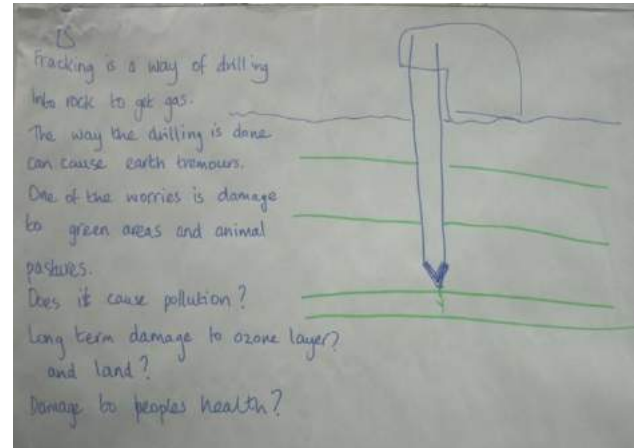 Fracking is a way of drilling
into rock to get gas.
The way the drilling is done
can cause earth tremours.
One of the worries is damage
to green areas and animal
pastures.
Does it cause pollution?
Long term damage to ozone layer?
and land?
Damage to peoples health?